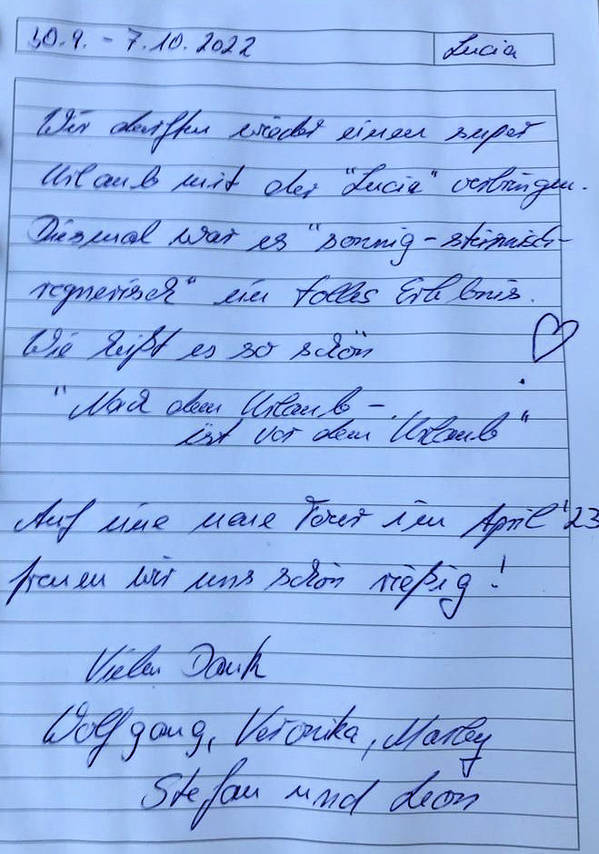 30.9. - 7.10. 2022 Lucia
Wir durften wieder einen super
Urlaub mit der "Lucia" verbringen.
Diesmal war es "sonnig-stürmisch-
regnerisch" ein tolles Erlebnis.
Wie heißt es so schön
"Nach dem Urlaub -
ist vor dem Urlaub"
Auf eine neue Tour im April '23
freuen wir uns schon rießig!
Vielen Dank
Wolfgang, Veronika, Marley
Stefan und Leon